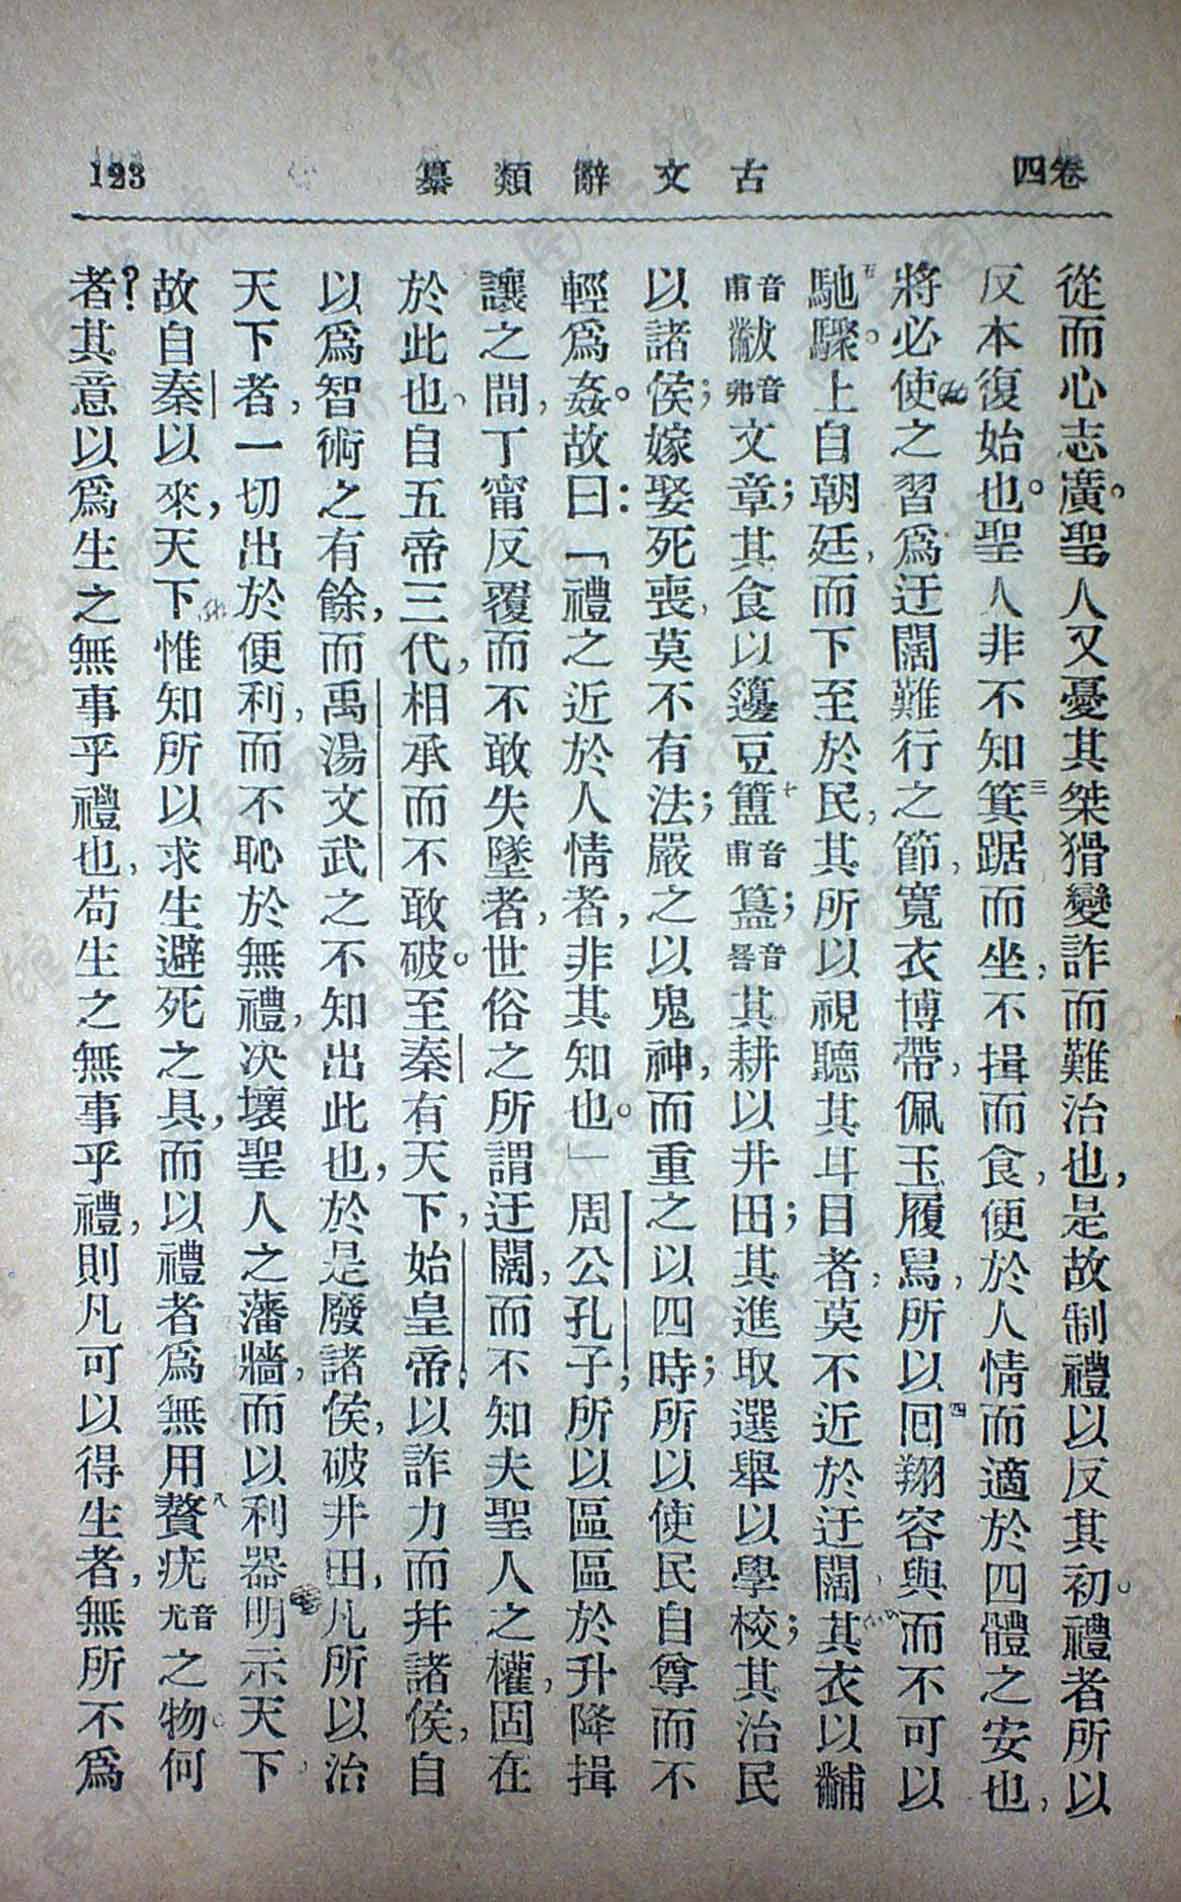 卷四
古文辭類纂
123
從而心志廣。聖人又憂其桀猾變詐而難治也，是故制禮以反其初。禮者所以
反本復始也。聖人非不知箕三踞而坐，不揖而食，便於人情而適於四體之安也，
將必使之習爲迂闊難行之節，寬衣博帶，佩玉履舃，所以回四翔容與而不可以
馳五驟。上自朝廷，而下至於民，其所以視聽其耳目者，莫不近於迂闊，其衣以黼
音甫黻音弗文章；其食以籩豆簠七音甫簋；音晷其耕以井田；其進取選舉以學校；其治民
以諸侯；嫁娶死喪，莫不有法；嚴之以鬼神，而重之以四時；所以使民自尊而不
輕爲姦。故曰：「禮之近於人情者，非其知也。」周公孔子，所以區區於升降揖
讓之間，丁甯反覆而不敢失墜者，世俗之所謂迂闊，而不知夫聖人之權，固在
於此也、自五帝三代，相承而不敢破。至秦有天下，始皇帝以詐力而幷諸侯，自
以爲智術之有餘，而禹湯文武之不知出此也，於是廢諸侯，破井田，凡所以治
天下者，一切出於便利，而不恥於無禮，决壞聖人之藩牆，而以利器明示天下，
故自秦以來，天下惟知所以求生避死之具，而以禮者爲無用贅八疣音尤之物。何
者？其意以爲生之無事乎禮也，苟生之無事乎禮，則凡可以得生者，無所不爲